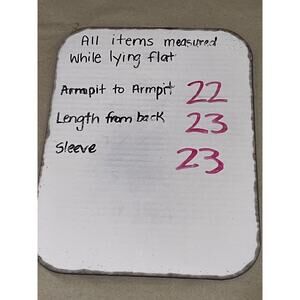 All items measured
While lying flat
Armpit to Armpit 22
Length from back 23
Sleeve 23